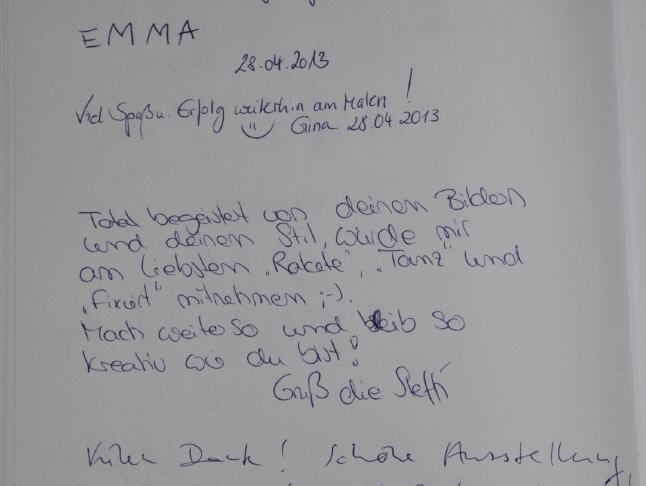 EMMA
28.04.2013
Viel Spaß u. Erfolg weiterhin am Malen!
Gina 28.04.2013
Total begeistert von deinen Bildern
und deinem Stil, würde mir
am liebsten „Rakete“, „Tanz“ und
„Fixiert“ mitnehmen ;-).
Mach weiter so und bleib so
kreativ wie du bist!
Gruß die Steffi
Vielen Dank! Schöne Ausstellung,